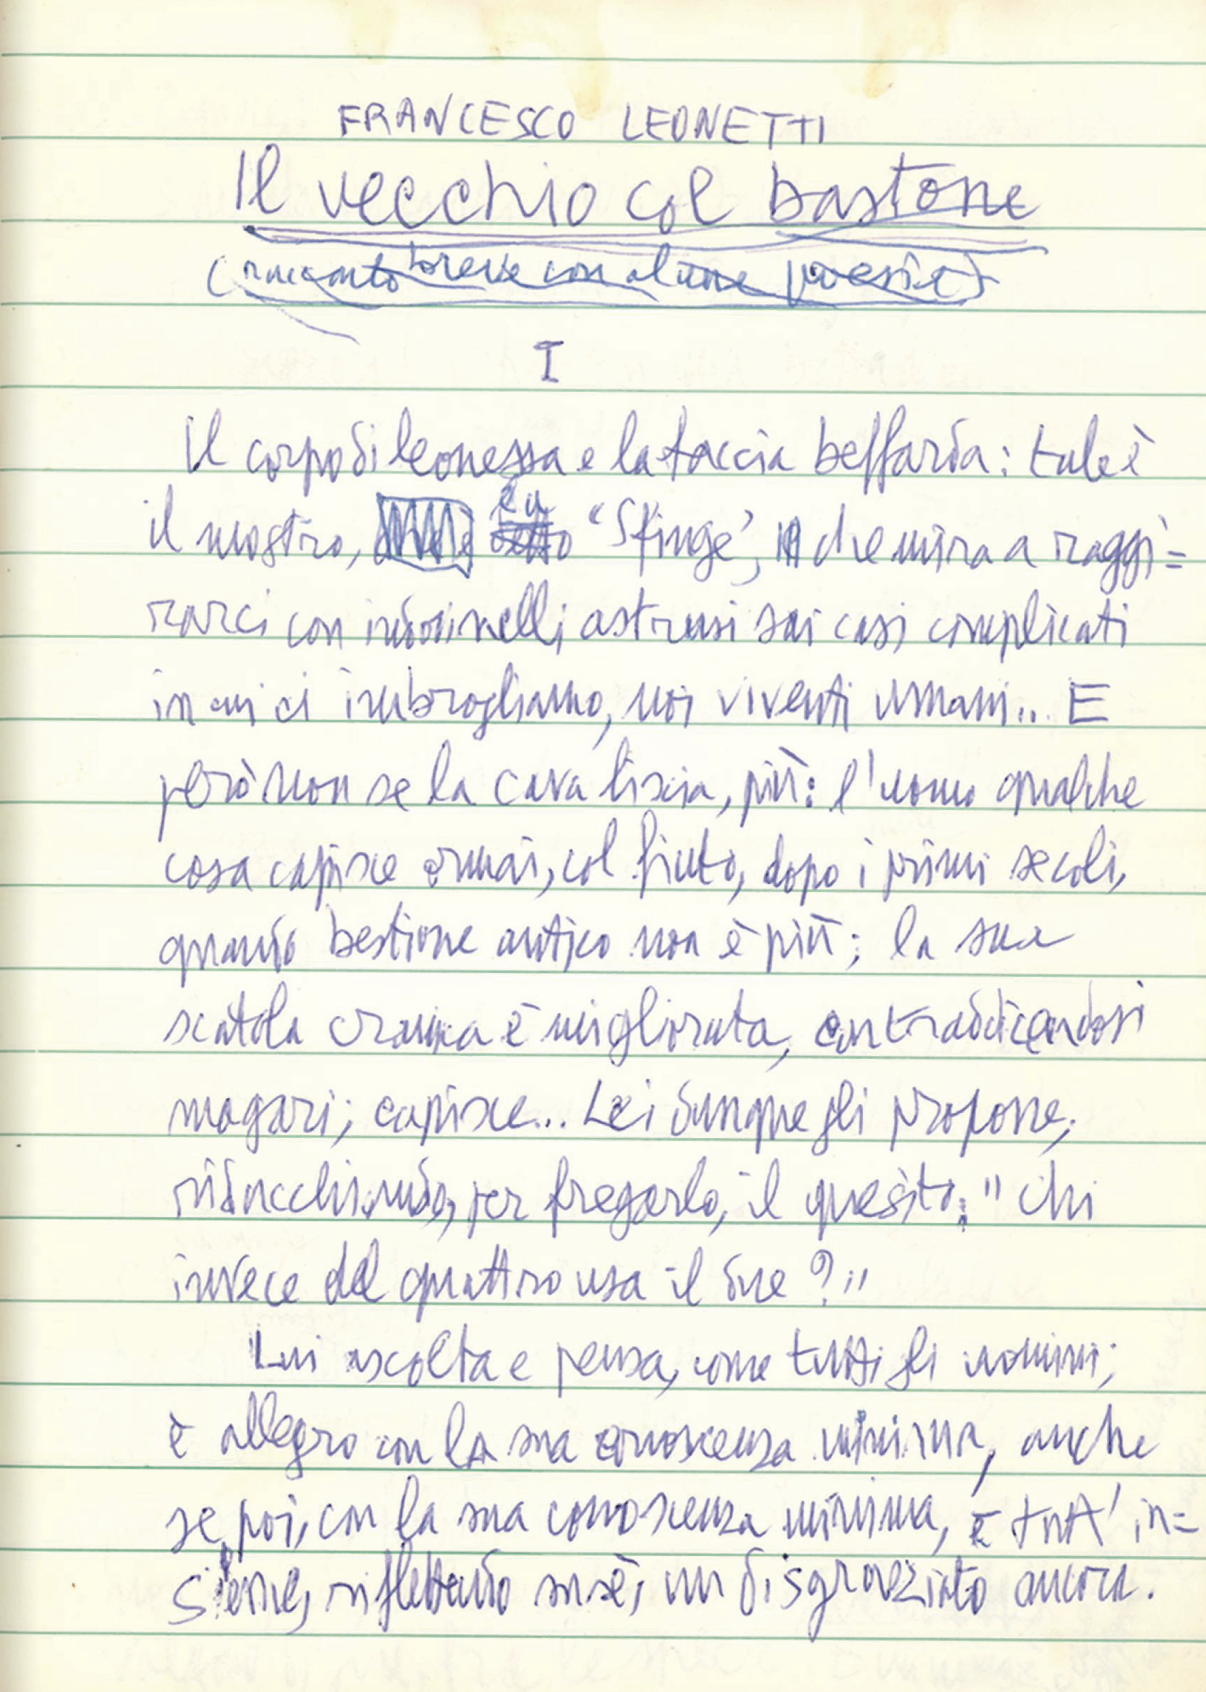 FRANCESCO LEONETTI
Il vecchio col bastone
(racconto breve con alcune poesie)
I
Il corpo di leonessa e la faccia beffarda: tale è
il mostro, la "Sfinge", che mira a raggi=
rarci con indovinelli astrusi sui casi complicati
in cui ci imbrogliamo, noi viventi umani... E
però non se la cava liscia, più: l'uomo qualche
cosa capisce ormai, col fiuto, dopo i primi secoli,
quando bestione antico non è più; la sua
scatola cranica è migliorata, contraddicendosi
magari; capisce... Lei dunque gli propone,
ridacchiando, per fregarlo, il quesito: "Chi
invece del quattro usa il due?"
Lui ascolta e pensa, come tutti gli uomini;
è allegro con la sua conoscenza minima, anche
se poi, con la sua conoscenza minima, è tutt'in=
sieme, riflettendo su sé, un disgraziato ancora.